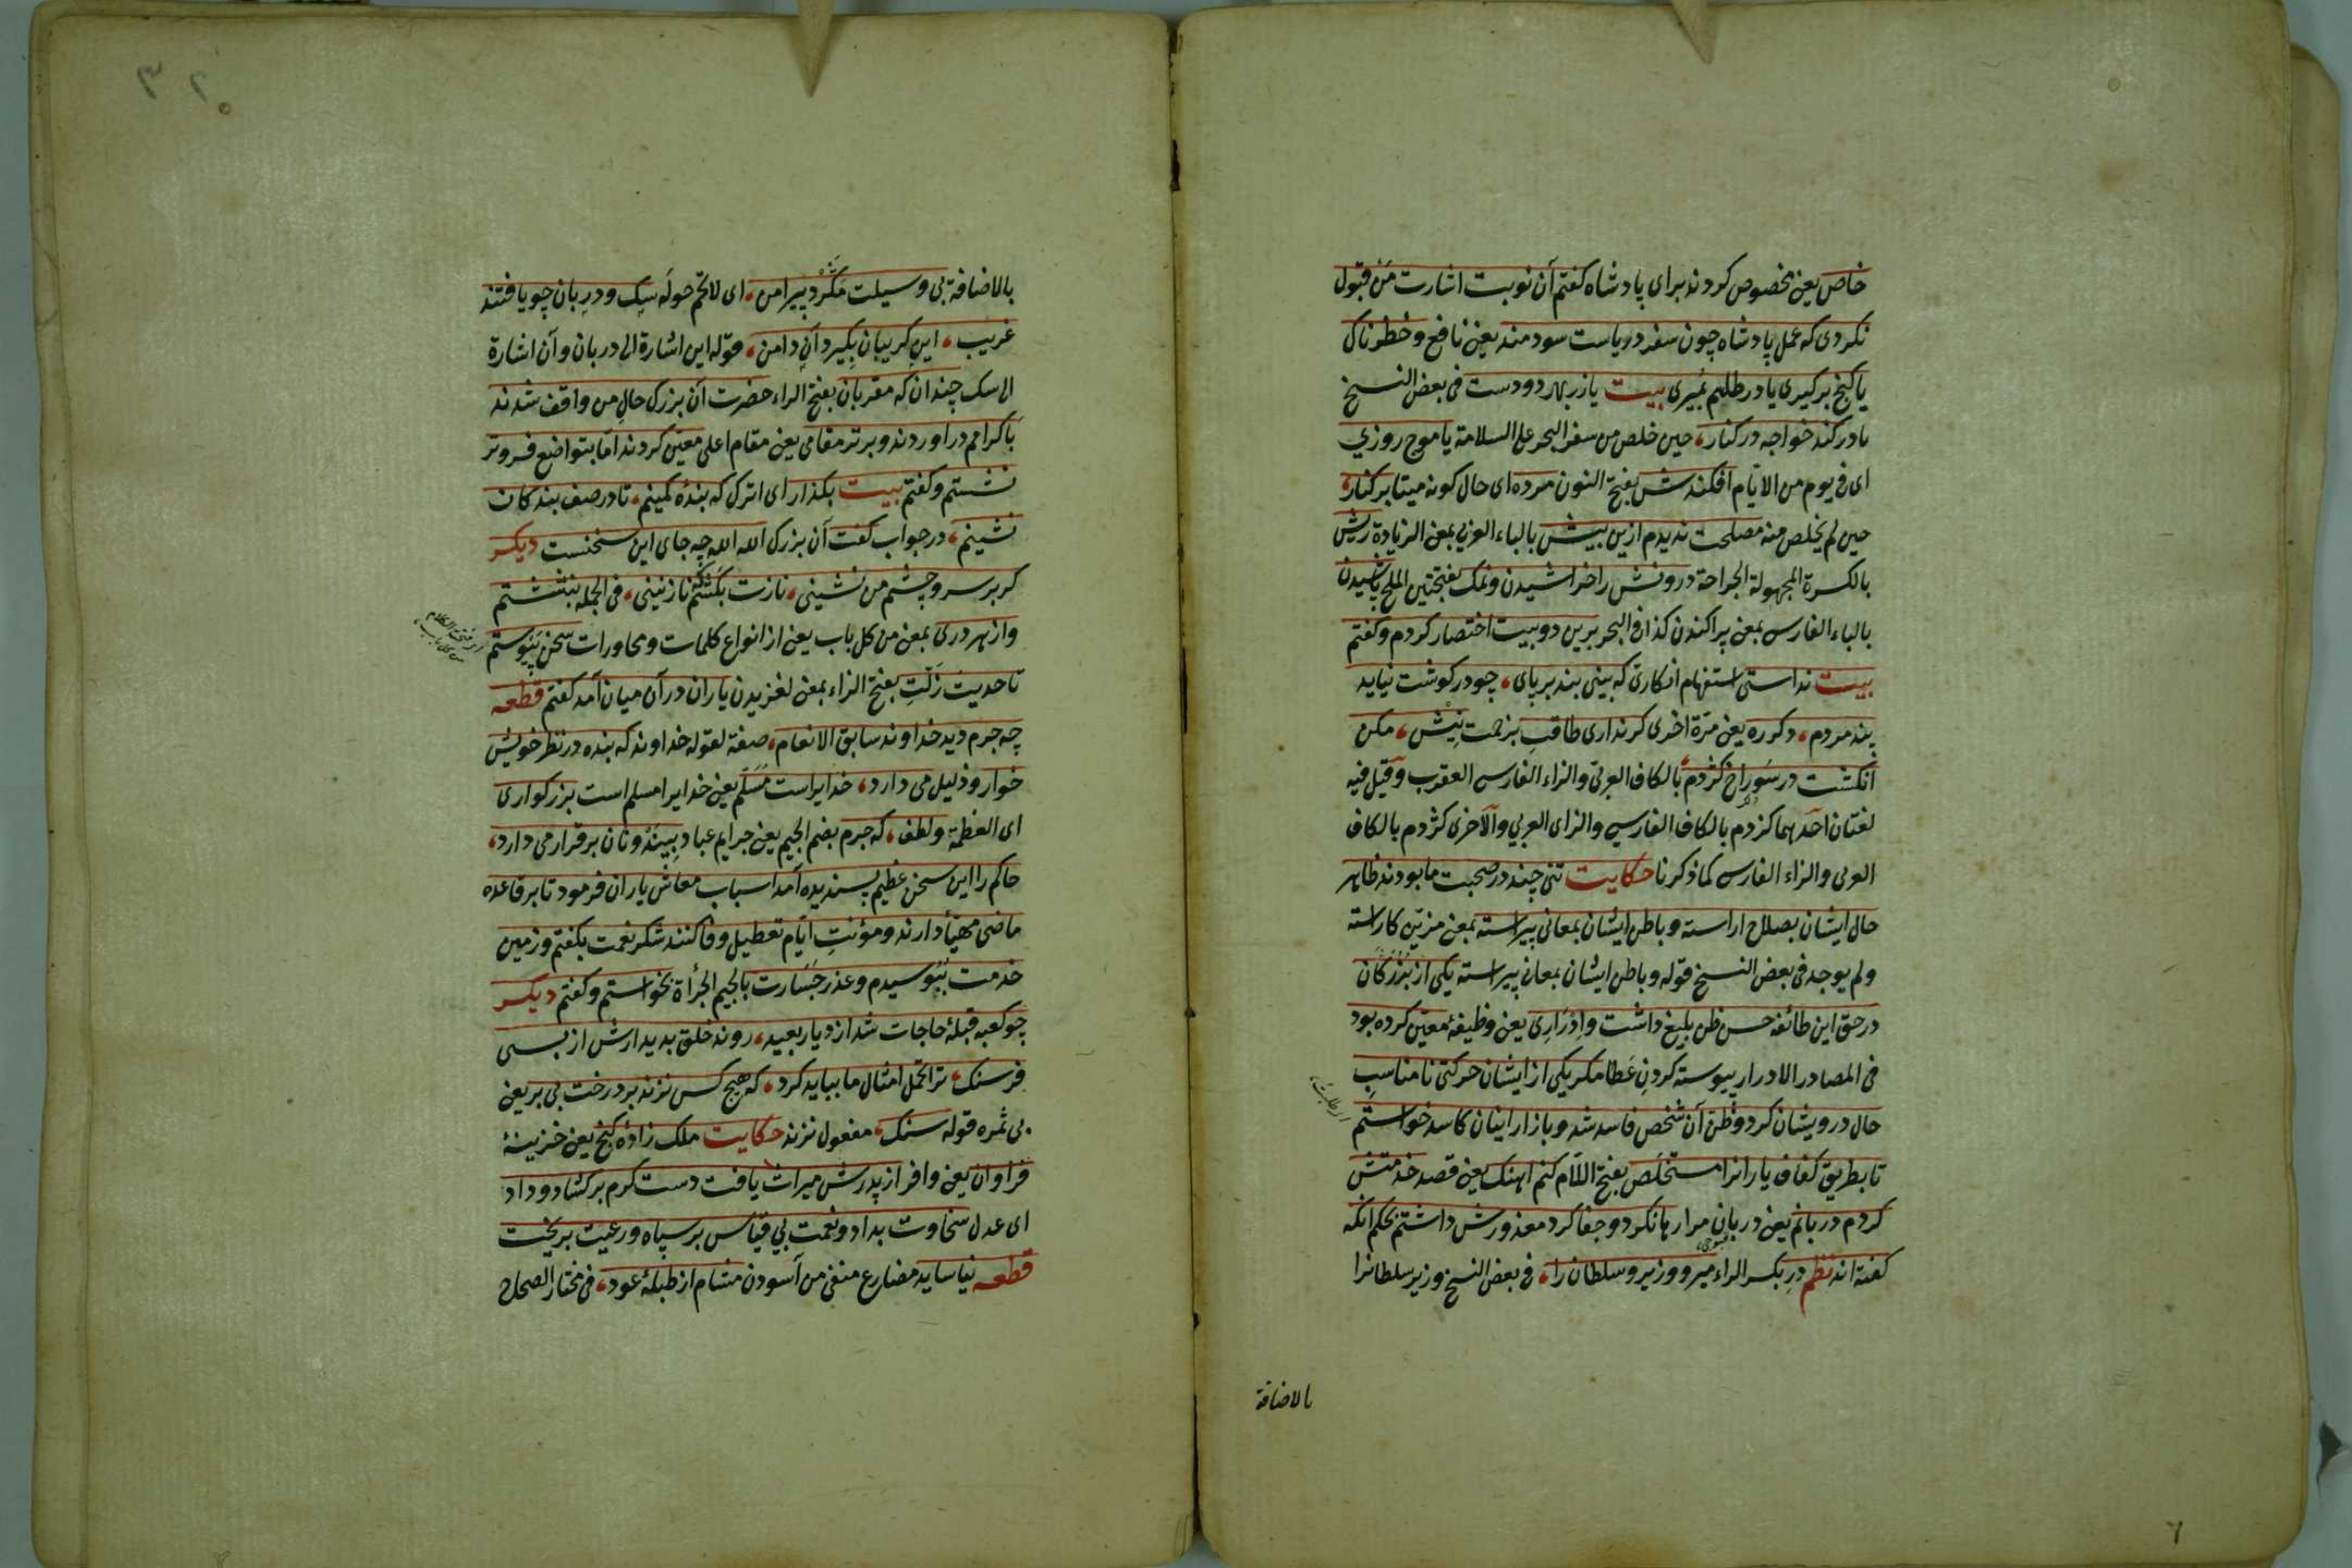 خاص یعنی مخصوص کردند برای پادشاه کفتم آن نوبت اشارت من قبول
نکردی که عمل پادشاه چون سفر دریاست سودمند یعنی نافع و خطرناک
یا کنج برکیری یا در طلسم بمیری بیت یا زر بهر دو دست فی بعض النسخ
یا در کند خواجه در کنار، حین خلص من سفر البحر علی السلامة یا موج روزی
ای فی یوم من الایّام افکندش بفتح النون مرده ای حال کونه میتا بر کنار،
حین لم یخلص منه مصلحت ندیدم ازین بیش بالباء العربی بمعنی الزیادة ریش
بالکسرة المجهولة الجراحة درونش را خراشیدن ونمک بفتحتین الملح پاشیدن
بالباء الفارسی بمعنی پراکندن کذا فی البحر برین دو بیت اختصار کردم وکفتم
بیت ندانستی استفهام انکاری که بینی بند بر پای، چو در کوشت نیاید
پند مردم، دکر ره یعنی مرّة اخری کر نداری طاقت زخمت نیش، مکن
انکشت در سوراخ کژدم بالکاف العربی والزاء الفارسی العقرب وقیل فیه
لغتان احدیهما کزدم بالکاف الفارسی والزای العربی والآخری کژدم بالکاف
العربی والزاء الفارسی کما ذکرنا حکایت تنی چند در صحبت ما بودند ظاهر
حال ایشان بصلاح اراسته وباطن ایشان بمعانی پیراسته بمعنی مزیّن کاراسته
ولم یوجد فی بعض النسخ قوله وباطن ایشان بمعانی پیراسته یکی از بزرکان
در حق این طائفه حسن ظن بلیغ داشت وادراری یعنی وظیفهٔ معیّن کرده بود
فی المصادر الادرار پیوسته کردن عطا مکر یکی از ایشان حرکتی نا مناسب
حال درویشان کرد وظن آن شخص فاسد شد وبازار اینان کاسد خواستم
تا بطریق کفاف یارانرا مستخلص بفتح اللام کنم اهنک یعنی قصد خدمتش
کردم دربانم یعنی دربان مرا رها نکرد وجفا کرد معذورش داشتم بحکم انکه
کفته اند نظم در بکسر الراء میر ووزیر وسلطان را، فی بعض النسخ وزیر سلطانرا
بالاضافة
بالاضافة بی وسیلت مکرد پیرامن، ای لا تحم حوله سک ودربان چو یافتند
غریب، این کریبان بکیرد آن دامن، قوله این اشارة الی دربان وآن اشارة
الی سک چندان که مقربان بفتح الراء حضرت آن بزرک حال من واقف شدند
باکرامم دراوردند وبرتر مقامی یعنی مقام اعلی معیّن کردند امّا بتواضع فروتر
نشستم وکفتم بیت بکذار ای اترک که بندهٔ کمینم، تا در صف بندکان
نشینم، در جواب کفت آن بزرک الله الله چه جای این سخنست دیکر
کر بر سر وچشم من نشینی، نازت بکشم نازنینی، فی الجمله بنشستم
واز هر دری بمعنی من کل باب یعنی از انواع کلمات ومحاورات سخن پیوستم
تا حدیث زلت بفتح الزاء بمعنی لغزیدن یاران در آن میان آمد کفتم قطعه
چه جرم دید خداوند سابق الانعام، صفة لقوله خداوند که بنده در نظر خویش
خوار وذلیل می دارد، خدایراست مسلم یعنی خدایرا مسلم است بزرکواری
ای العظمة ولطف، که جرم بضم الجیم یعنی جرایم عباد بیند ونان برقرار می دارد،
حاکم را این سخن عظیم پسندیده آمد اسباب معاش یاران فرمود تا بر قاعده
ماضی مهیّا دارند ومؤنت ایّام تعطیل وفا کنند شکر نعمت بکفتم وزمین
خدمت ببوسیدم وعذر جسارت بالجیم الجرأة بخواستم وکفتم دیکر
چو کعبه قبلهٔ حاجات شد از دیار بعید، روند خلق بدیدارش از بسی
فرسنک، ترا تحمل امثال ما بباید کرد، که هیچ کس نزند بر درخت بی بر یعنی
بی ثمره قوله سنک، مفعول نزند حکایت ملک زادهٔ کنج یعنی خزینهٔ
فراوان یعنی وافر از پدرش میراث یافت دست کرم برکشاد وداد
ای عدل سخاوت بداد ونعمت بی قیاس بر سپاه ورعیت بریخت
قطعه نیاساید مضارع منفی من آسودن مشام از طبلهٔ عود، فی مختار الصحاح